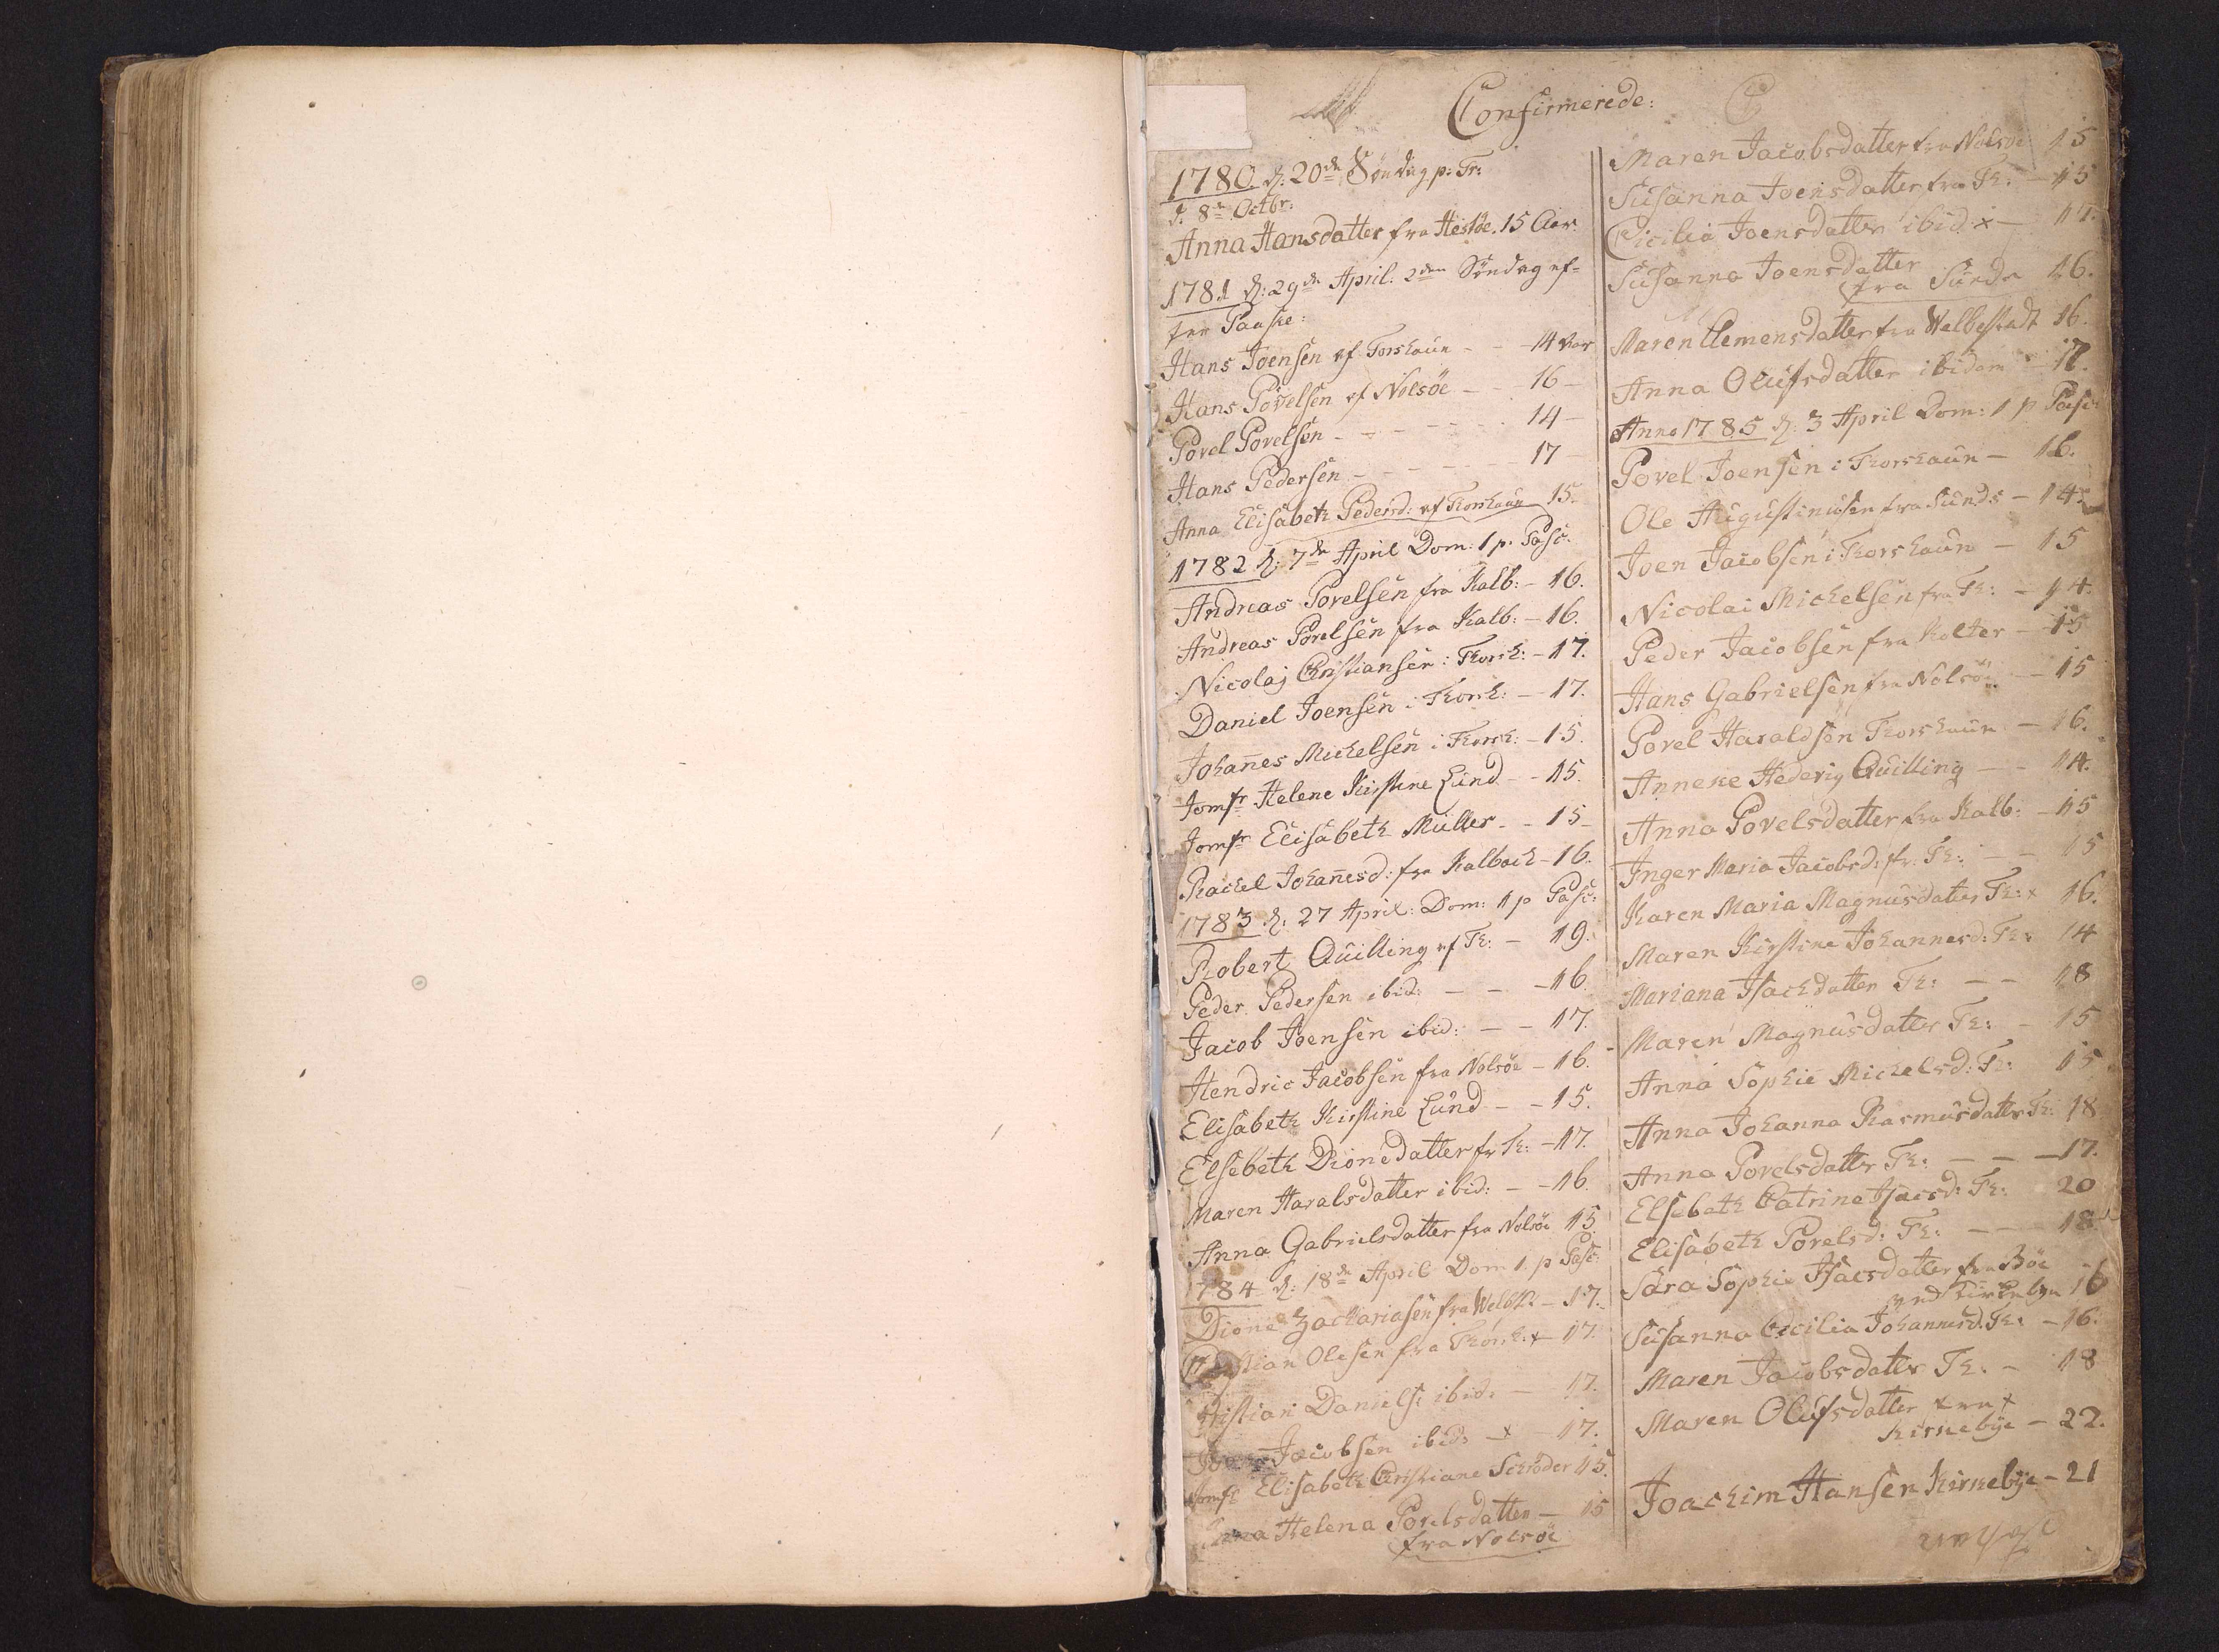 Confirmerede:
1780 d: 20de Söndag p: Tr:
d. 8de Octbr:
Anna Hansdatter fra Hestöe. 15 Aar
1781 d: 29de April. 2den Söndag ef-
ter Paaske:
Hans Joensen af Torshaun - - 14 Aar
Hans Povelsen af Nolsöe - - 16 -
Povel Povelsen - - - - - - 14 -
Hans Pedersen - - - - - - 17 -
Anna Elisabeth Pedersd: af Thorshaun 15.
1782 d: 7de April Dom: 1 p. Pasc:
Andreas Povelsen fra Kalb: - 16.
Andreas Povelsen fra Kalb: - 16.
Nicolaj Christiansen i Thorsh: - 17.
Daniel Joensen i Thorsh: - 17.
Johan̄es Michelsen i Thorsh: - 15.
Jomfr Helene Kirstine Lund - - 15.
Jomfr Elisabeth Müller - - 15 -
Rachel Johan̄esd: fra Kalbach - 16.
1783 d: 27 April: Dom: 1 p Pasc:
Robert Quilling af Th: - 19.
Peder Pedersen ibid: - - - 16.
Jacob Joensen ibid: - - 17.
Hendric Jacobsen fra Nolsöe - 16.
Elisabeth Kirstine Lund - - 15.
Elsebeth Dionedatter fr Th: - 17.
Maren Haralsdatter ibid: - - 16
Anna Gabrielsdatter fra Nolsöe 15
1784 d: 18de April Dom 1. p Pasc:
Dione Zachariasen fra Welbst: - 17.
Christian Olesen fra Thorsh: x 17.
Christian Daniels: ibid: - 17.
Jacobsen ibid: x - 17.
Jomfr Elisabeth Christiane Schröder 15.
Helena Povelsdatter - 15
fra Nolsöe
Maren Jacobsdatter fra Nolsöe 15
Susanna Joensdatter fra Th: - 15
Cicilia Joensdatter ibid: x - 17.
Susanna Joensdatter
fra Sunde 16.
Maren Clemensdatter fra Welbestadt 16.
Anna Olufsdatter ibidem - 17.
Anno 1785 d: 3 April Dom: 1 p Pasc:
Povel Joensen i Thorshaun - 16.
Ole Augustinusen fra Sunds - 14.
Joen Jacobsen i Thorshaun - 15
Nicolai Michelsen fra Th: - 14.
Peder Jacobsen fra Kolter - 15
Hans Gabrielsen fra Nolsöe - 15
Povel Haraldsen Thorshaun - 16.
Anneke Hedevig Quilling - - 14.
Anna Povelsdatter fra Kalb: - 15
Inger Maria Jacobsd: fr. Th: - - 15
Karen Maria Magnusdatter Th: x 16.
Maren Kirstine Johannesd: Th: 14
Mariana Isachdatter Th: - - 18
Maren Magnusdatter Th: - 15
Anna Sophie Michelsd: Th: 15
Anna Johanna Rasmusdatter Th: 18
Anna Povelsdatter Th: - - - 17.
Elsebeth Catrine Isacsd: Th: 20
Elisabeth Povelsd: Th: - - 18.
Sara Sophie Isacsdatter fra Böe
16
Susanna Cecilia Johannesd: Th: - 16.
Maren Jacobsdatter Th: - 18
Maren Olufsdatter fra x
Kirkebye - 22.
Joachim Hansen Kirkebye - 21